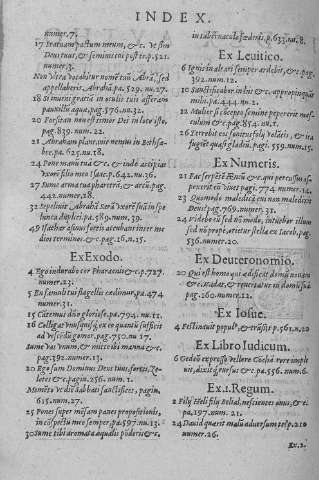 INDEX.
numer.7.
17 Statuam pactum meum, &c. Vt sim
Deus tuus, & seminis tui post te. p.521.
numer.3.
Non vltra vocabitur nomẽ tuũ Abrã, sed
appellaberis Abrahã pa. 529. nu. 27.
18 Si inueni gratiã in oculis tuis afferam
pauxillũ aquę, pag. 576. nu. 32.
20 Forsitan non est timor Dei in loco isto,
pag. 839. num. 22.
21 Abraham plane. vit nemus in Bethsa-
bee. pa. 625. nu. 18.
24 Pone manũ tuã &c. & inde accipias
Vxorẽ filio meo Isaac. p. 642. nu. 36.
27 Sume arma tua pharetrã, & arcũ. pag.
442. numer. 28.
32 Appellauit
49 Isachar asinus fortis accubans inter me
dios terminos. &c. pag. 16. n. 15.
Ex Exodo.
4 Ego indurabo cor Pharaonis &c. p. 727.
numer. 23.
5 En famuli tui flagellis cædimur, pa. 474
numer. 31.
15 Currus
16 Colligat vnusquisq; ex eo quantũ sufficit
ad vescendũ gomor. pag. 750. nu. 17.
Sume vas vnum, & mitte ibi manna &c.
pag. 392. numer. 13.
20 Ego sum Dominus Deus tuus fortis, Ze-
lotes &c. pagin. 256. num. 1.
Memẽto vt diẽ sabbati sanctifices, pagin.
615. num. 27.
25 Pones super mẽsam panes propositionis,
in cõspectu meo semper. pa. 597. nu. 13.
30 Sume tibi aromata æqualis põderis &c.
in tabernaculo fœderis. p. 633. nu. 8.
Ex Leuitico.
6 Ignis in altari semper ardebit, &c. pag.
392. num. 12.
10 Sanctificabor in his &c. appropinquãt
mihi. pa. 444. nu. 2.
12 Mulier si suscepto semine pepererit mascu-
lum &c. pag. 854. nu. 1.
26 Terrebit eos sonitus folij volãtis, & ita
fugiẽt quasi gladiũ. pagi. 559. num. 15.
Ex Numeris.
21 Fac serpẽtẽ Æneũ &c. qui percussus as-
pexerit eũ viuet pag. 774 numer. 14.
23 Quomodo maledicã cui non maledixit
Deus? pag. 769. numer. 31.
24 Videbo eũ sed nõ modò, intuebor illum
sed nõ propè, orietur stella ex Iacob, pag.
536. numer. 20.
Ex Deuteronomio.
20 Quis est homo qui ædificauit domũ nouam
&c. vadat, & reuertatur in domũ suã
pag. 260. numer. 12.
Ex Iosue.
4 Festinauit populꝰ, & trãsijt p. 561. n. 20
Ex Libro Iudicum.
6 Gedeõ expresso vellere Cochã rore imple
uit, dixitq; rursus &c. pa. 556. num. 6.
Ex .1. Regum.
2 Filij Heli filij Belial, nescientes dñm, &c.
pa, 197. num. 21.
24 Dauid quærit malũ aduersum te? p. 210
numer. 26.
Ex .2.